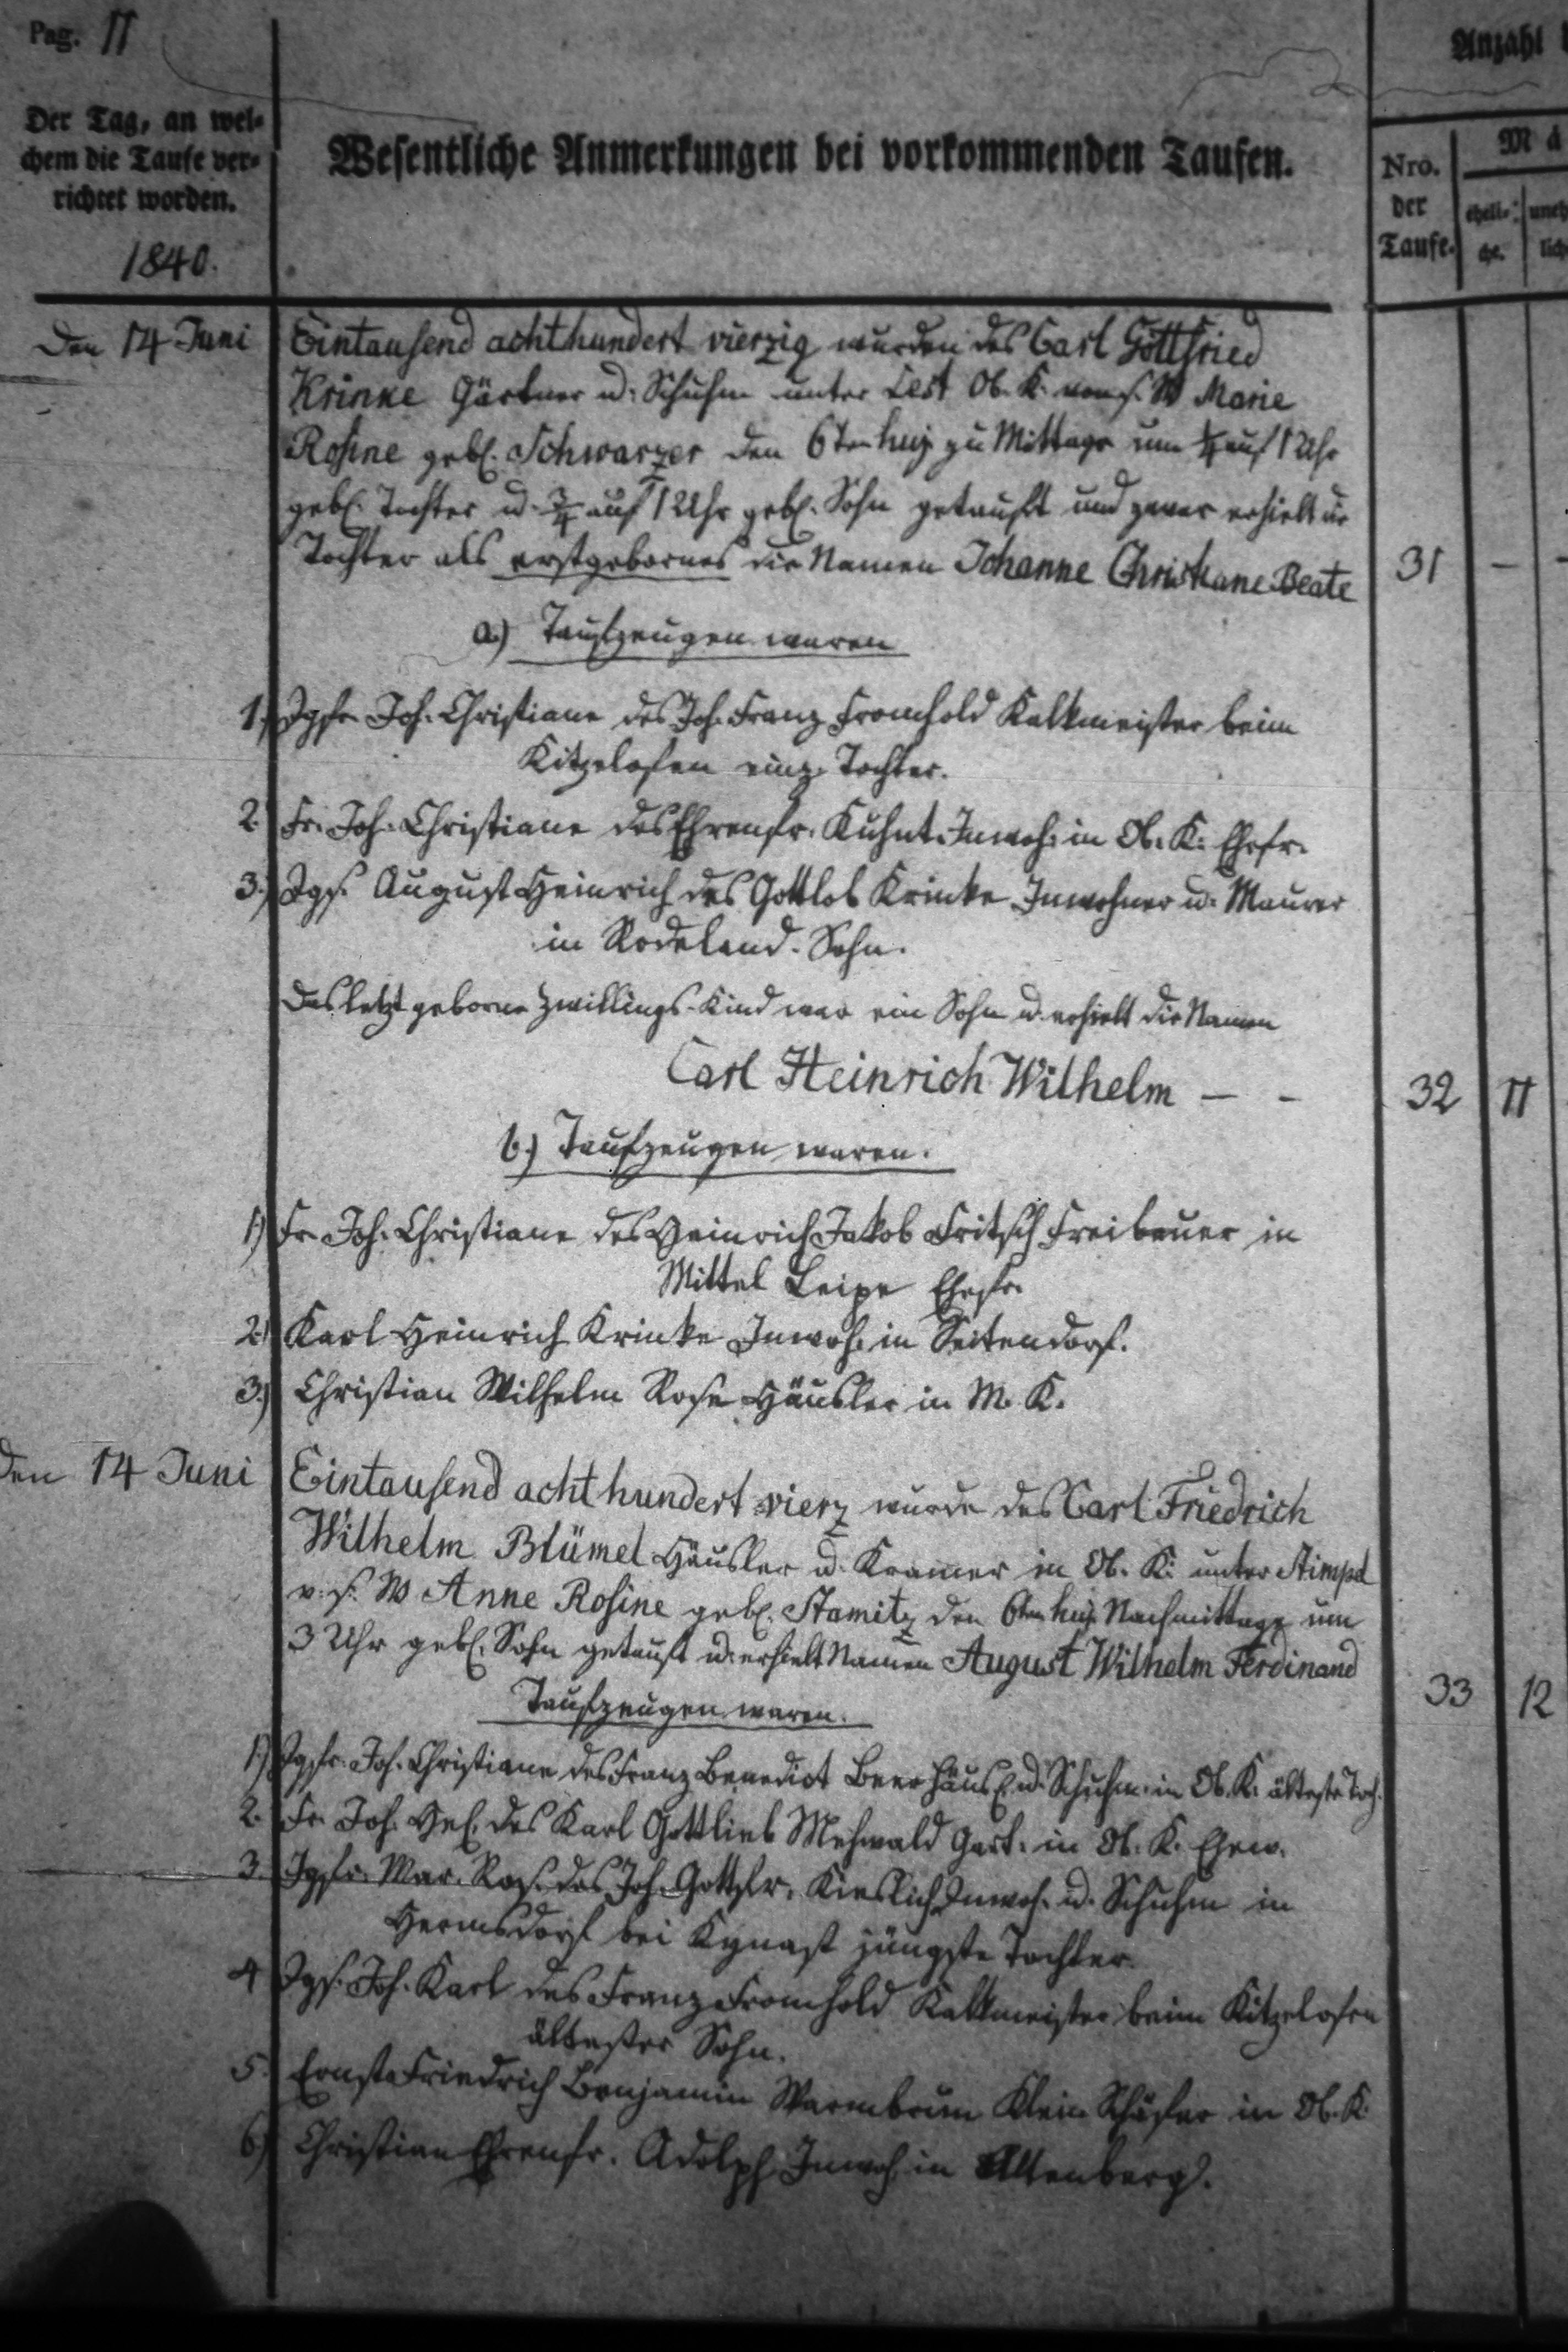 Pag. 11
Anzahl
Der Tag, an wel-
chem die Taufe ver-
richtet worden.
1840.
Wesentliche Anmerkungen bei vorkommenden Taufen.
Nro.
der
Taufe.
Mä
eheli-
che.
uneh
lich
Den 14 Juni
Eintausend achthundert vierzig wurden des Carl Gottfried
Krinke Gärtner u. Schuhm unter Lest Ob. K. von s. W Marie
Rosine geb. Schwarzer den 6ten huj. zu Mittage um ¼ auf 1 Uhr
geb. Tochter u. ¾ auf 1 Uhr geb. Sohn getauft und zwar erhielt die
Tochter als erstgebornes die Namen Johanne Christiane Beate
31 –
a.) Taufzeugen waren
1.) Jgfr. Joh. Christiane des Joh. Franz Fromhold Kalkmeister beim
Kitzelofen einz. Tochter.
2. Fr. Joh. Christiane des Ehrenfr. Kuhnt. Inwoh. in Ob. K. Ehefr.
3.) Jgs. August Heinrich des Gottlob Krinke Inwohner u. Maurer
in Rodeland. Sohn.
Das letzt geborne Zwillings-Kind war ein Sohn u. erhielt die Namen
Carl Heinrich Wilhelm – –
32 11
b.) Taufzeugen waren.
1.) Fr. Joh. Christiane des Heinrich Jakob Fritsch Freibauer in
Mittel Leipe Ehefr.
2.) Karl Heinrich Krinke Inwoh. in Seitendorf.
3.) Christian Wilhelm Rose Häusler in M. K.
Den 14 Juni
Eintausend acht hundert vierz wurde des Carl Friedrich
Wilhelm Blümel Häusler u. Kramer in Ob. K. unter Stimpel
v. s. W Anne Rosine geb. Stamitz den 6ten huj. Nachmittage um
3 Uhr geb. Sohn getauft u. erhielt Namen August Wilhelm Ferdinand
33 12
Taufzeugen waren.
1.) Jgfr. Joh. Christiane des Franz Benedict Beer Häusl. u. Schuhm. in Ob. K. älteste Toch.
2. Fr. Joh. Hel. des Karl Gottlieb Mehwald Gart. in Ob. K. Ehew.
3. Jgfr. Mar. Ros. des Joh. Gottfr. Kieslich Inwoh. u. Schuhm in
Hermsdorf bei Kynast jüngste Tochter.
4 Jgs. Joh. Karl des Franz Fromhold Kalkmeister beim Kitzelofen
ältester Sohn.
5. Ernst Friedrich Benjamin Warmbrunn Klein Schäfer in Ob. K.
6.) Christian Ehrenfr. Adolph Inwoh. in Altenberg.